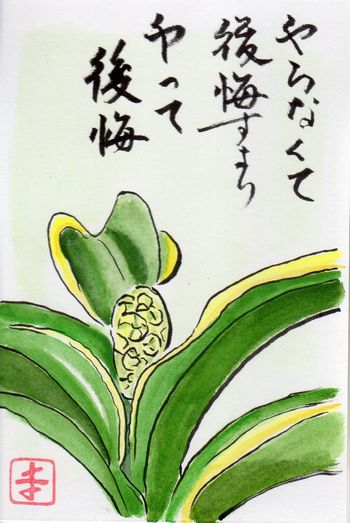 やらなくて
後悔するより
やって
後悔